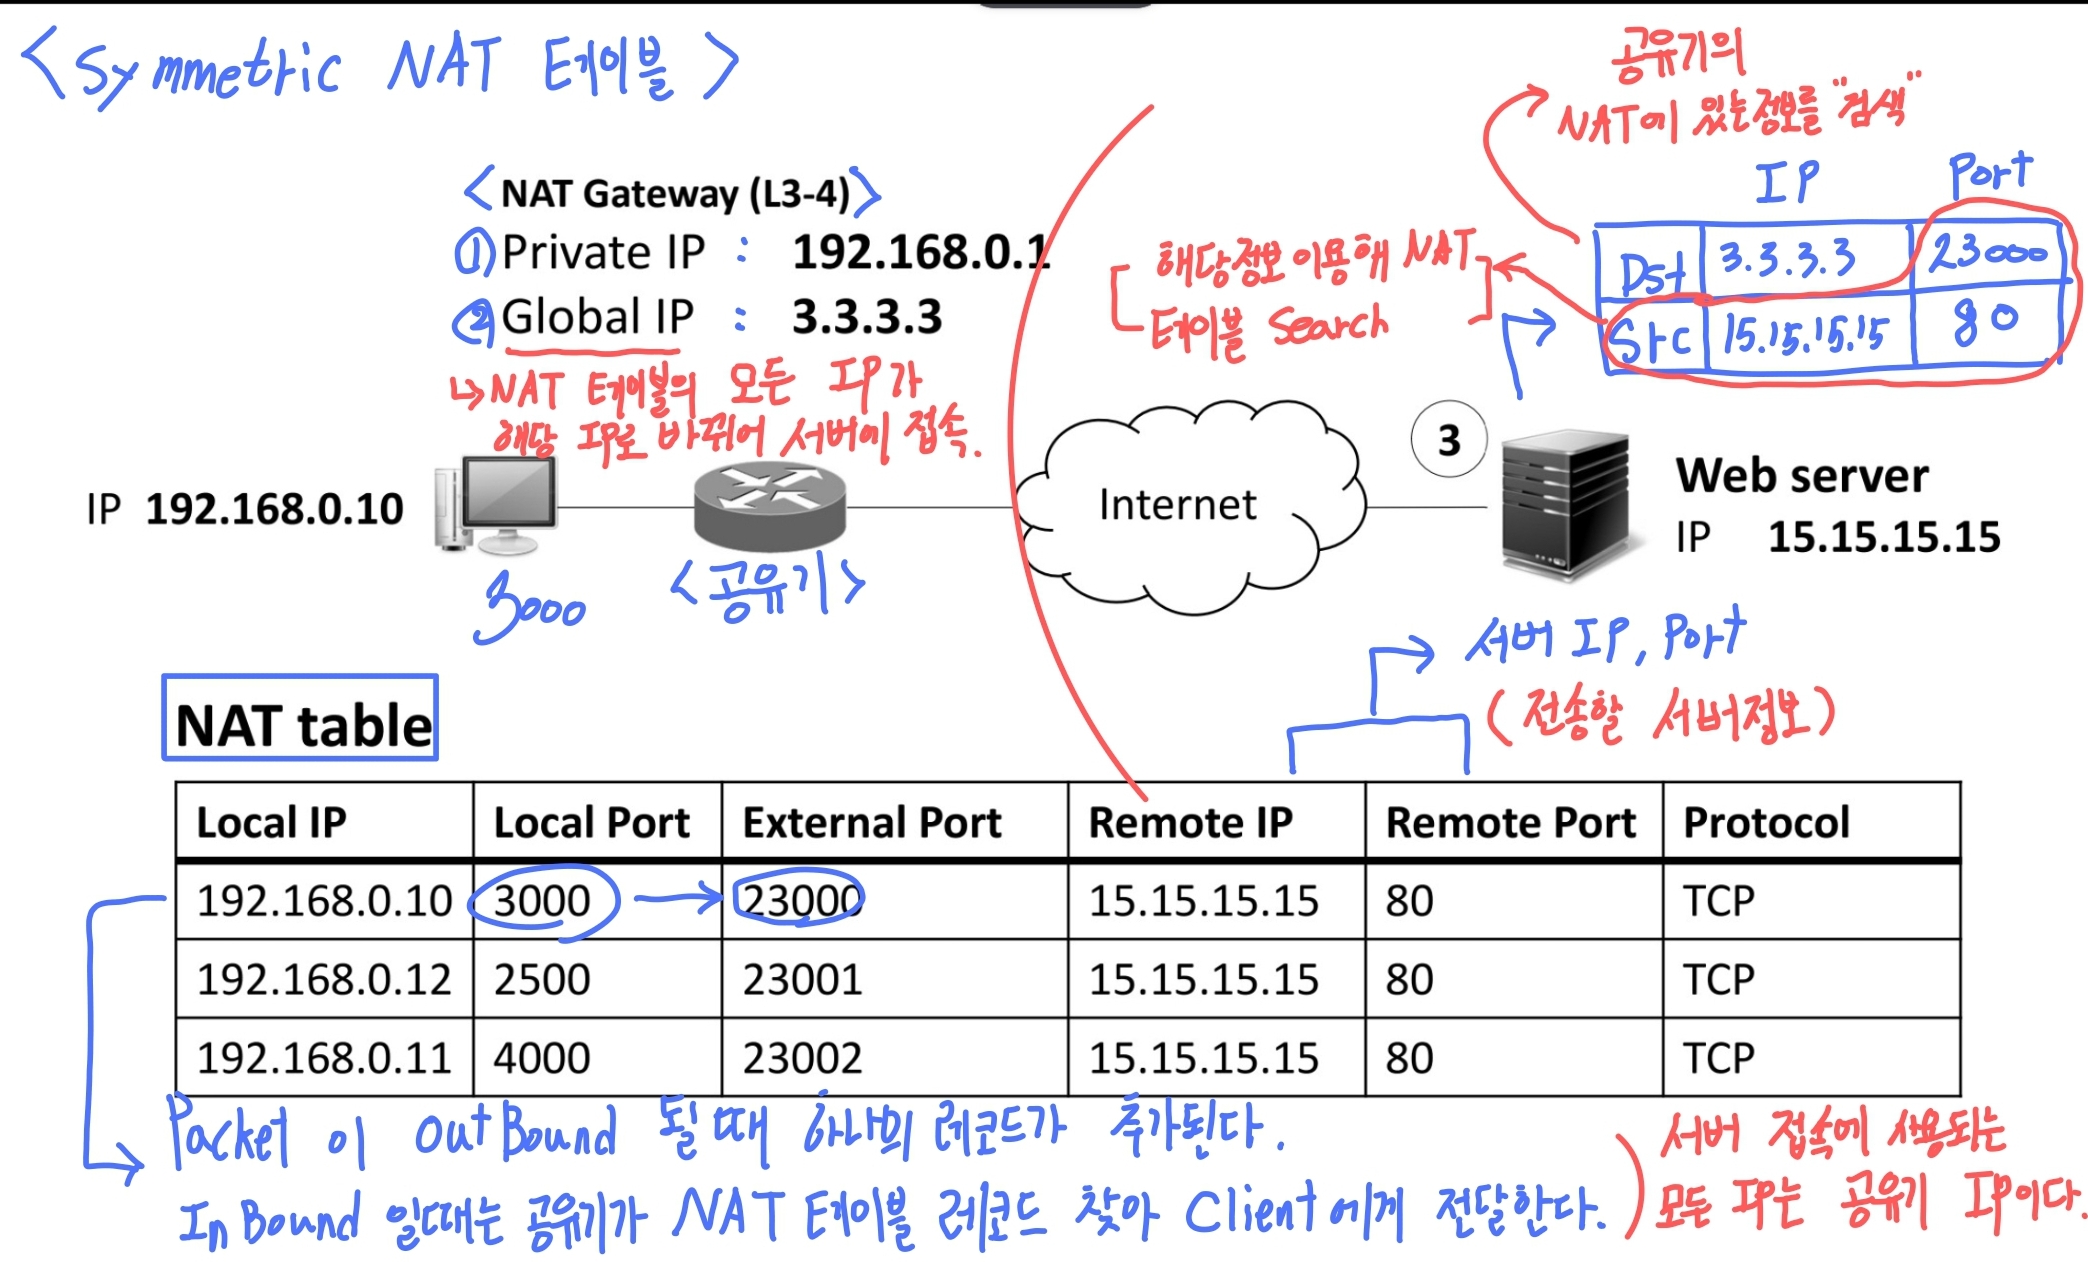 <Symmetric NAT 테이블>
공유기의
NAT에 있는 정보를 "검색"
<NAT Gateway (L3-4)>
① Private IP : 192.168.0.1
② Global IP : 3.3.3.3
↳ NAT 테이블의 모든 IP가
해당 IP로 바뀌어 서버에 접속.
해당정보 이용해 NAT
테이블 Search
IP Port
Dst 3.3.3.3 23000
Src 15.15.15.15 80
3
IP 192.168.0.10
Internet
Web server
IP 15.15.15.15
3000
<공유기>
서버 IP, Port
(전송할 서버정보)
NAT table
Local IP Local Port External Port Remote IP Remote Port Protocol
192.168.0.10 3000 → 23000 15.15.15.15 80 TCP
192.168.0.12 2500 23001 15.15.15.15 80 TCP
192.168.0.11 4000 23002 15.15.15.15 80 TCP
Packet이 OutBound 될때 하나의 레코드가 추가된다.
InBound 일때는 공유기가 NAT 테이블 레코드 찾아 Client에게 전달한다.
서버 접속에 사용되는
모든 IP는 공유기 IP이다.